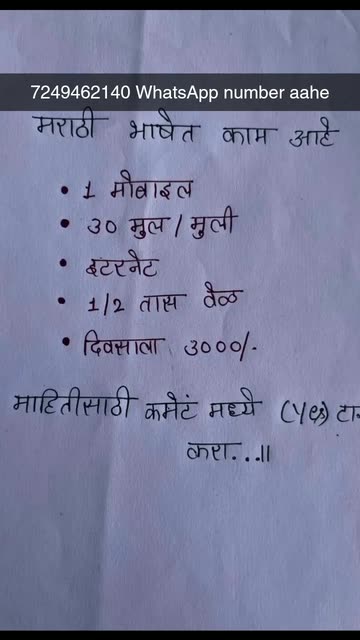 7249462140 WhatsApp number aahe
मराठी भाषेत काम आहे
• 1 मोबाइल
• 30 मुल / मुली
• इटरनेट
• 1/2 तास वेळ
• दिवसाला 3000/-
माहितीसाठी कमेटं मध्ये (Yes)
करा...॥